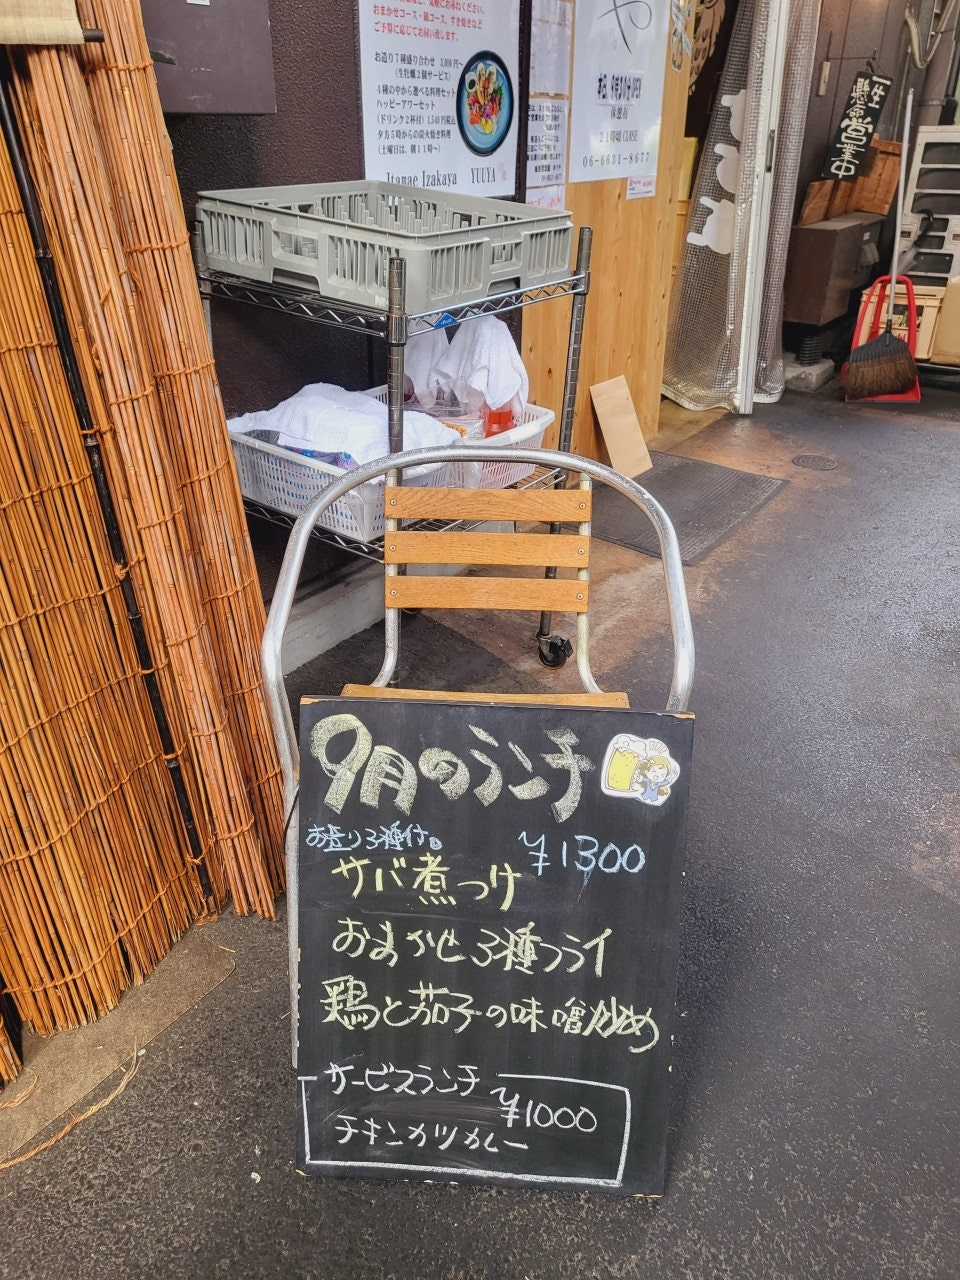 おまかせコース・鍋コース、すき焼きなど
ご予算に応じてお伺い致します。
お造り7種盛り合わせ 3,000円〜
(生牡蠣2個サービス)
4種の中から選べる料理セット
ハッピーアワーセット
(ドリンク2杯付) 1,540円税込
夕方5時からの炭火焼き料理
(土曜日は、朝11時〜)
Itamae Izakaya YUUYA
や
OPEN
21時頃 CLOSE
06-6631-8677
一生
懸命
営業中
9月のランチ
お造り3種付
¥1300
サバ煮つけ
おまかせ3種フライ
鶏と茄子の味噌炒め
サービスランチ
¥1000
チキンカツカレー